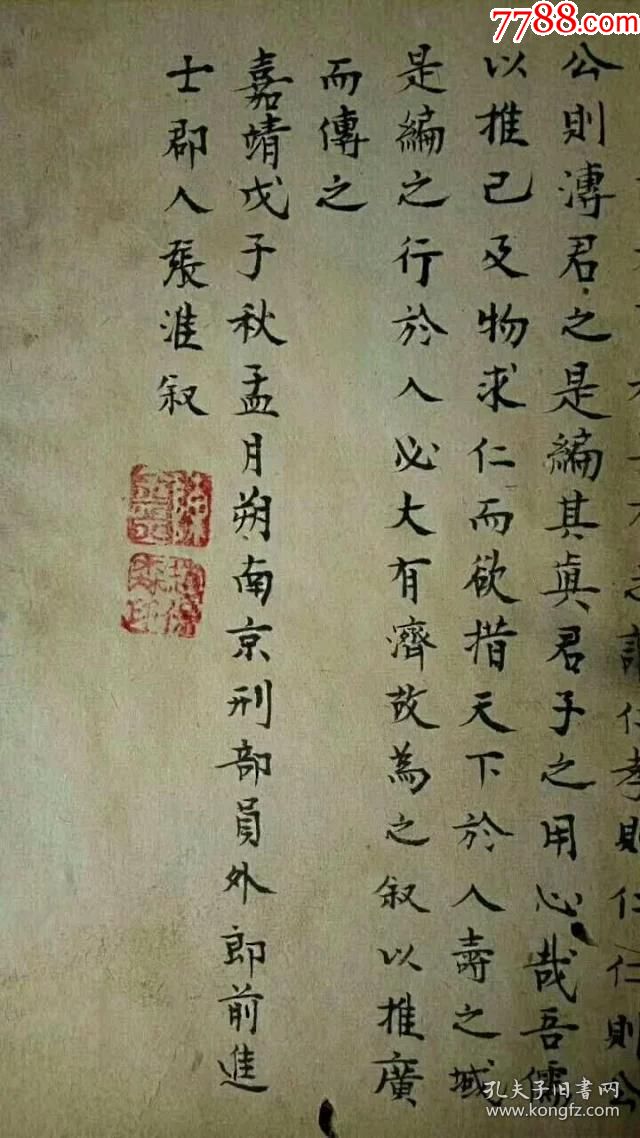 之謂仁孝則仁仁則公
公則溥君之是編其真君子之用心哉吾儒
以推己及物求仁而欲措天下於人壽之域
是編之行於人必大有濟故為之叙以推廣
而傳之
嘉靖戊子秋孟月朔南京刑部員外郎前進
士郡人張淮叙
7788.com
孔夫子旧书网
www.kongfz.com